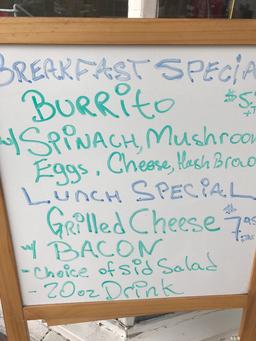 BREAKFAST SPECIA
BURRITO $5.
W/ SPINACH, Mushroom
Eggs, Cheese, Hash Brow
LUNCH SPECIAL
Grilled Cheese $7.95
W/ BACON
- Choice of sid Salad
- 20 oz Drink